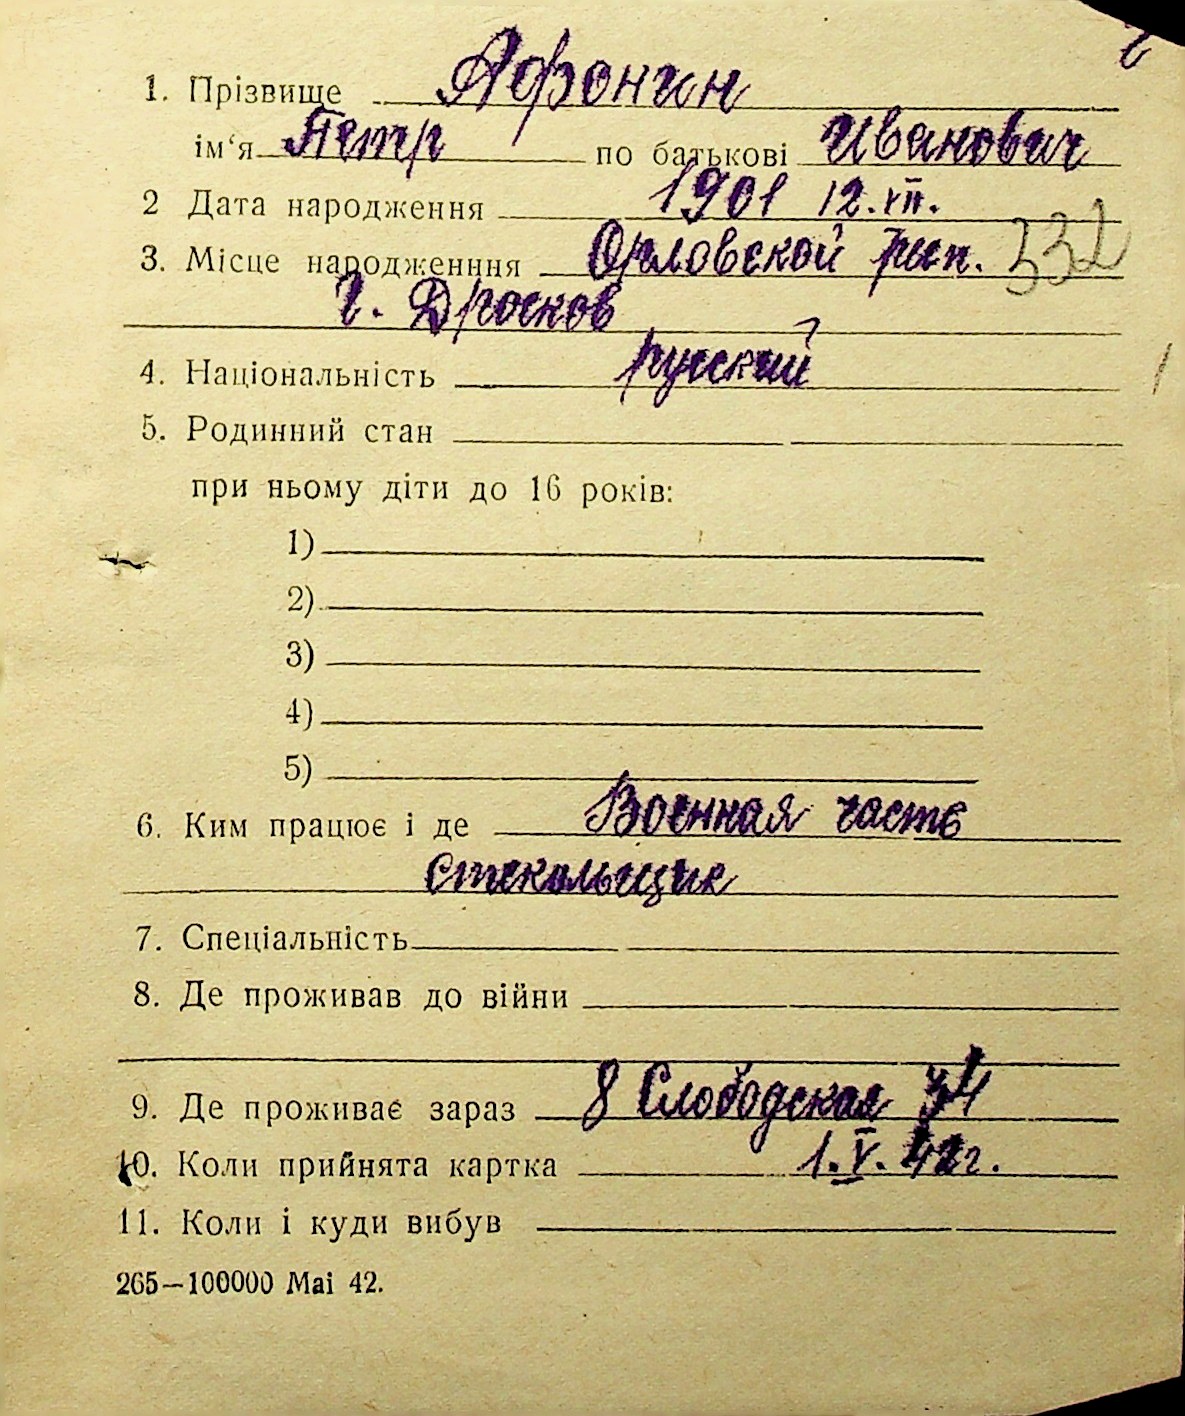 1. Прізвище Афонин
ім‘я Петр по батькові Иванович
2 Дата народження 1901 12.VII.
3. Місце народженння Орловской 332
г. Дросков
4. Національність русский
5. Родинний стан
при ньому діти до 16 років:
1)
2)
3)
4)
5)
6. Ким працює і де Военная часть
Стекольщик
7. Спеціальність
8. Де проживав до війни
9. Де проживає зараз 8 Слободская 34
10. Коли прийнята картка 1.V.42г.
11. Коли і куди вибув
265—100000 Mai 42.